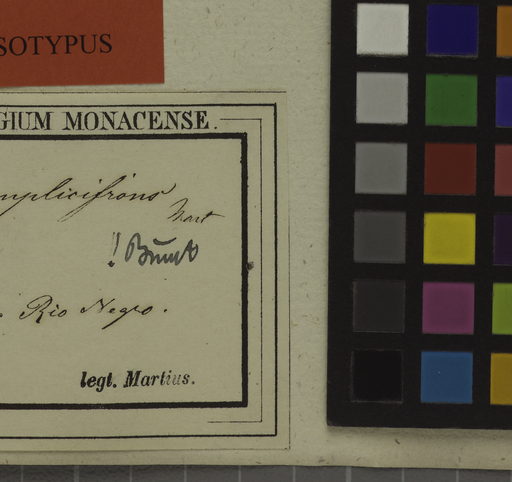 SOTYPUS
GIUM MONACENSE.
mplicifrons
Mart
! Burret
. Rio Negro.
legt. Martius.